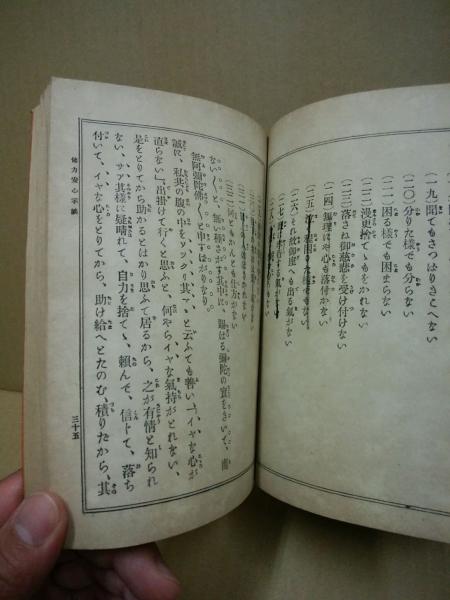 (一九)聞てもさつはりきこへない
(二〇)分りた様でも分らない
(二一)困る様でも困まらない
(二二)沒更捨てゝもをかれない
(二三)落さね御慈悲を受け付けない
(二四)無理にや心も落付かない
(二六)これ故御座へも出る氣がない
(三二)何ともかんとも仕方がない
ない〳〵と、無い極さが其中に、賜はる彌陀の寳をさいて、南
無阿彌陀佛〳〵と申すばかりなり。
誠に、私共の腹の中をソックリ其マヽと云ふても善い「イヤな心が
直らない」「出掛けて行くと思ふと、何やらイヤな氣持がとれない、
是をとりてから助かるとはかり思ふて居るから、之が有情と知られ
ない、サア其樣に疑晴れて、自力を捨てゝ、賴んで、信トて、落ち
付いて、イヤな心をとりてから、助け給へとたのむ、積りだから、其
他力安心示談
三十五